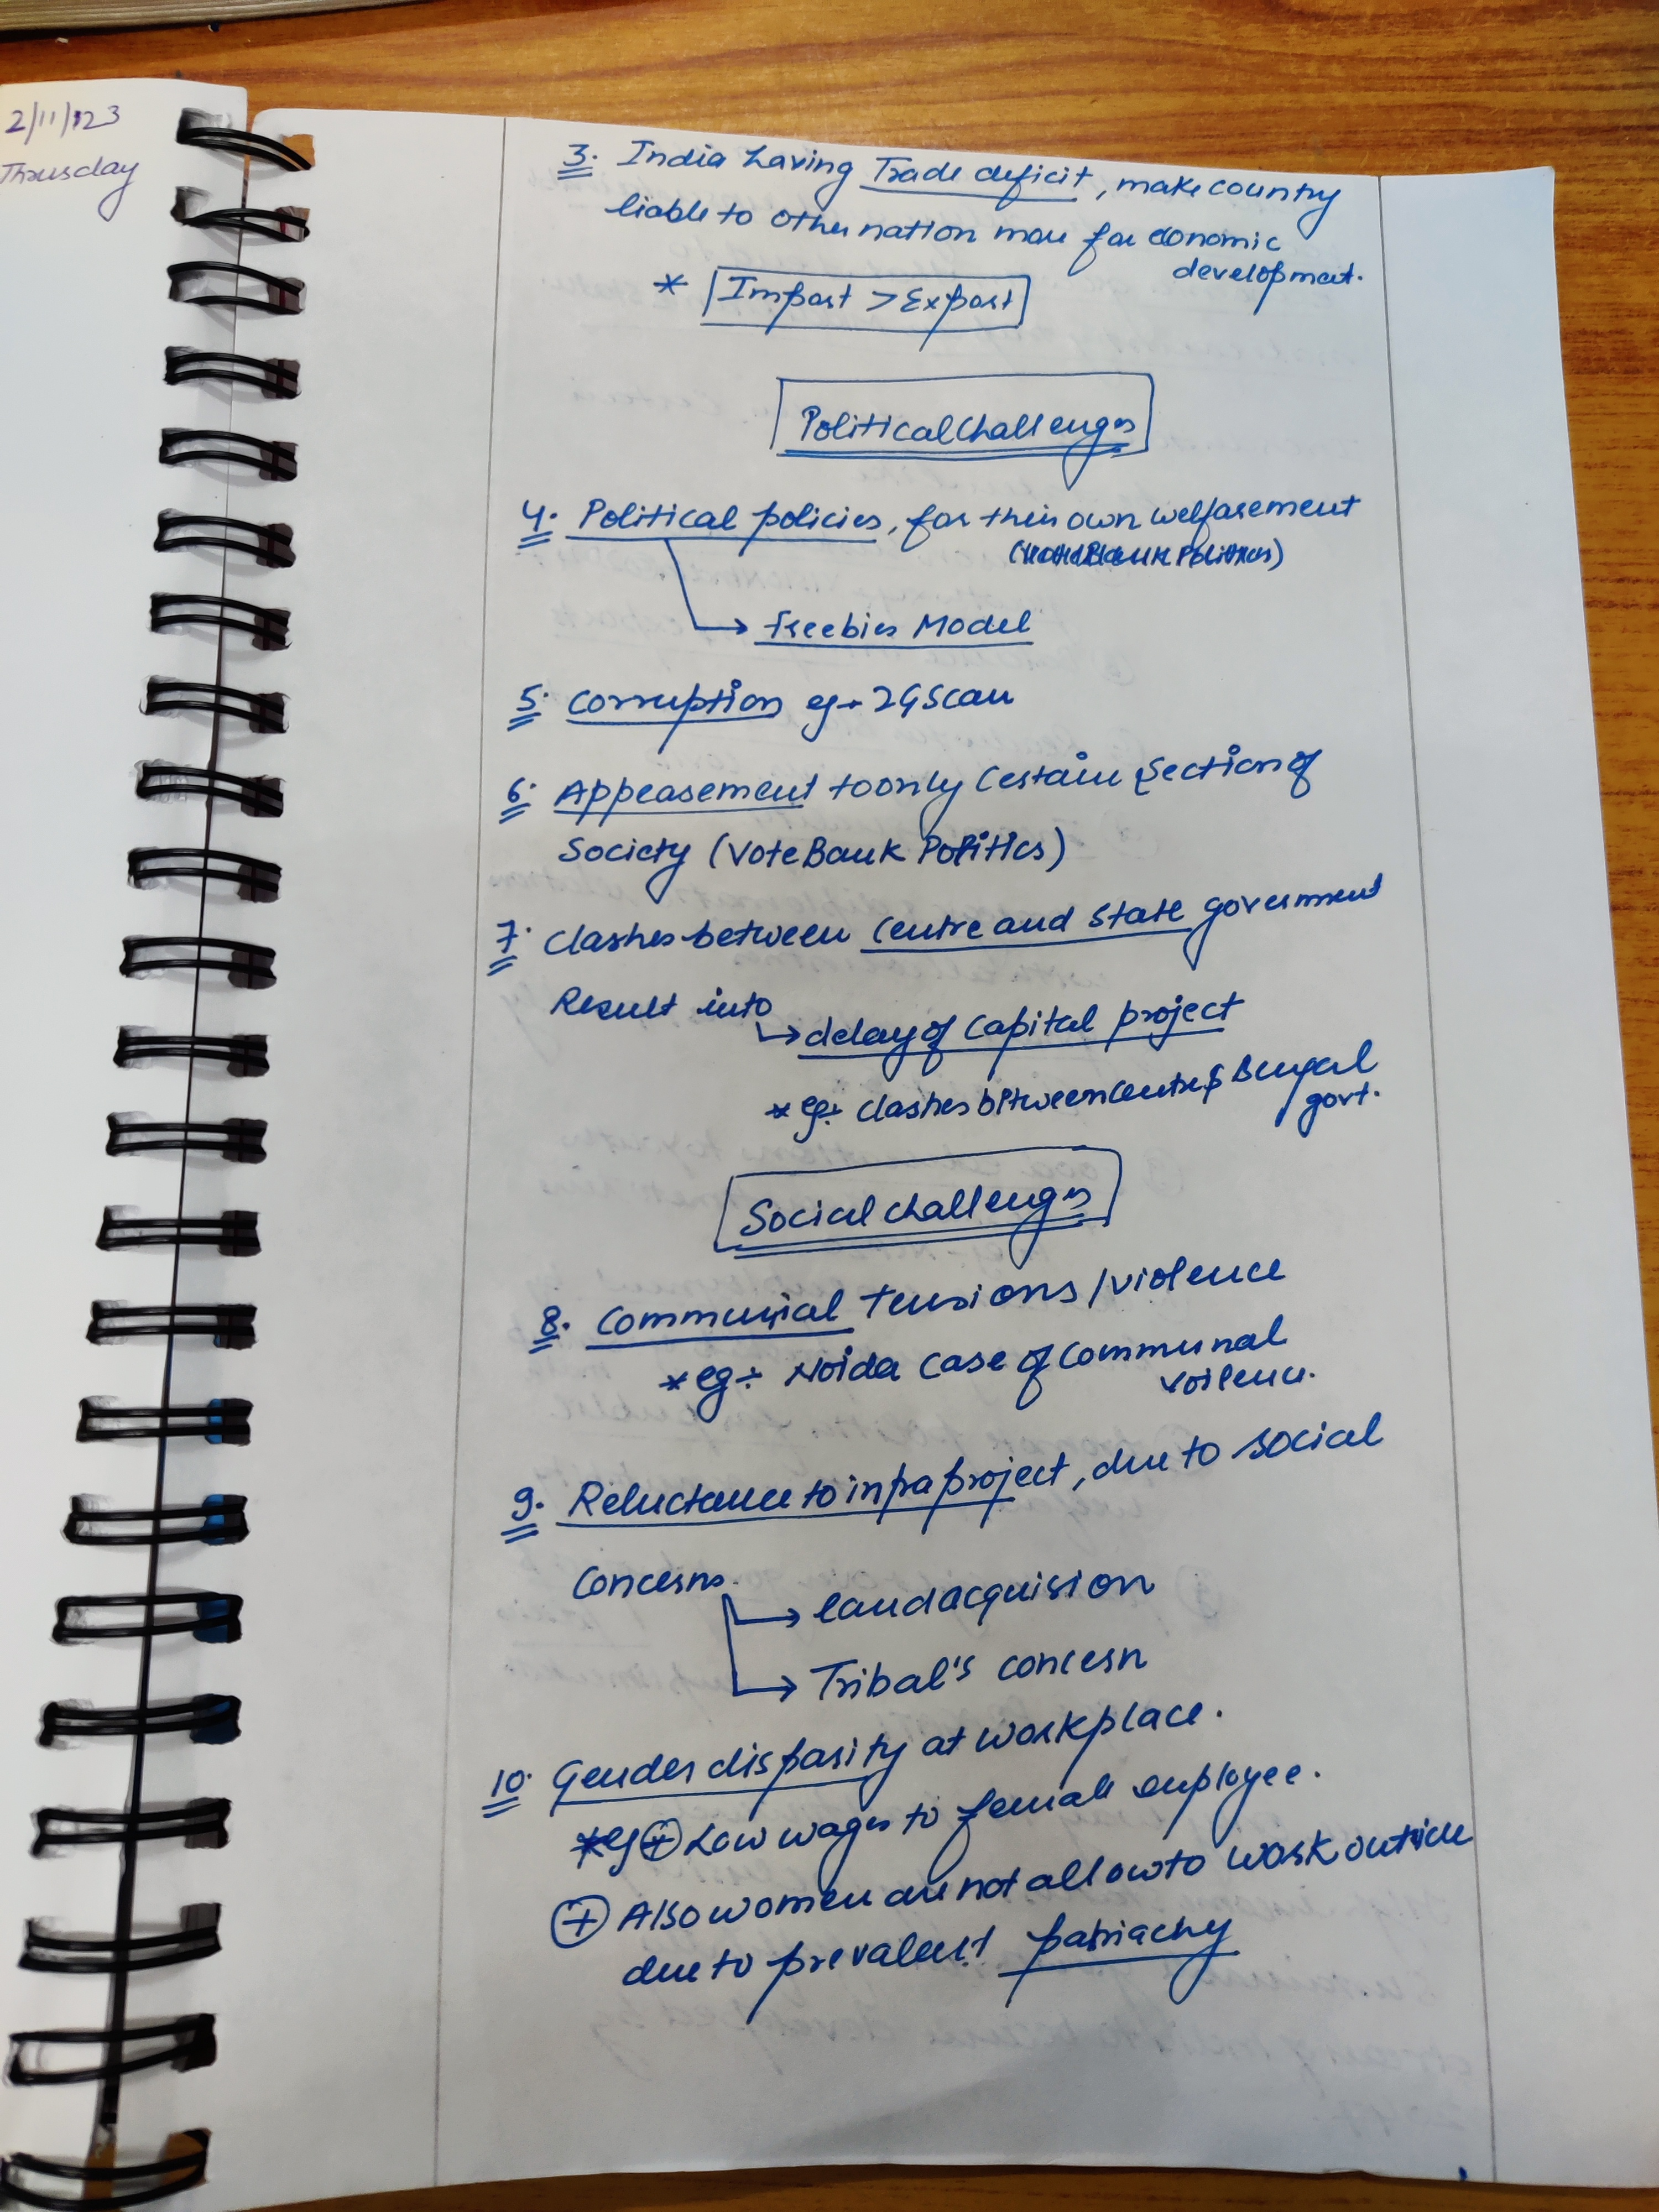 2/11/23
Thrusday
3. India having Trade deficit, make country
liable to other nation more for economic
development.
* Import > Export
Political Challenges
4. Political policies, for their own welfarement
Politics)
→ freebies Model
5. Corruption eg → 2G Scam
6. Appeasement to only certain section of
Society (Vote Bank Politics)
7. Clashes between Centre and State government
Result into
→ delay of capital project
* eg:- clashes between Centre & Bengal
govt.
Social challenges
8. Communal Tensions/violence
* eg:- Noida case of communal
voilence.
9. Reluctance to infra project, due to social
Concerns.
→ land acquision
→ Tribal's concern
10. Gender disparity at workplace.
* eg + Low wages to female employee.
+ Also women are not allow to work outside
due to prevalent patriachy